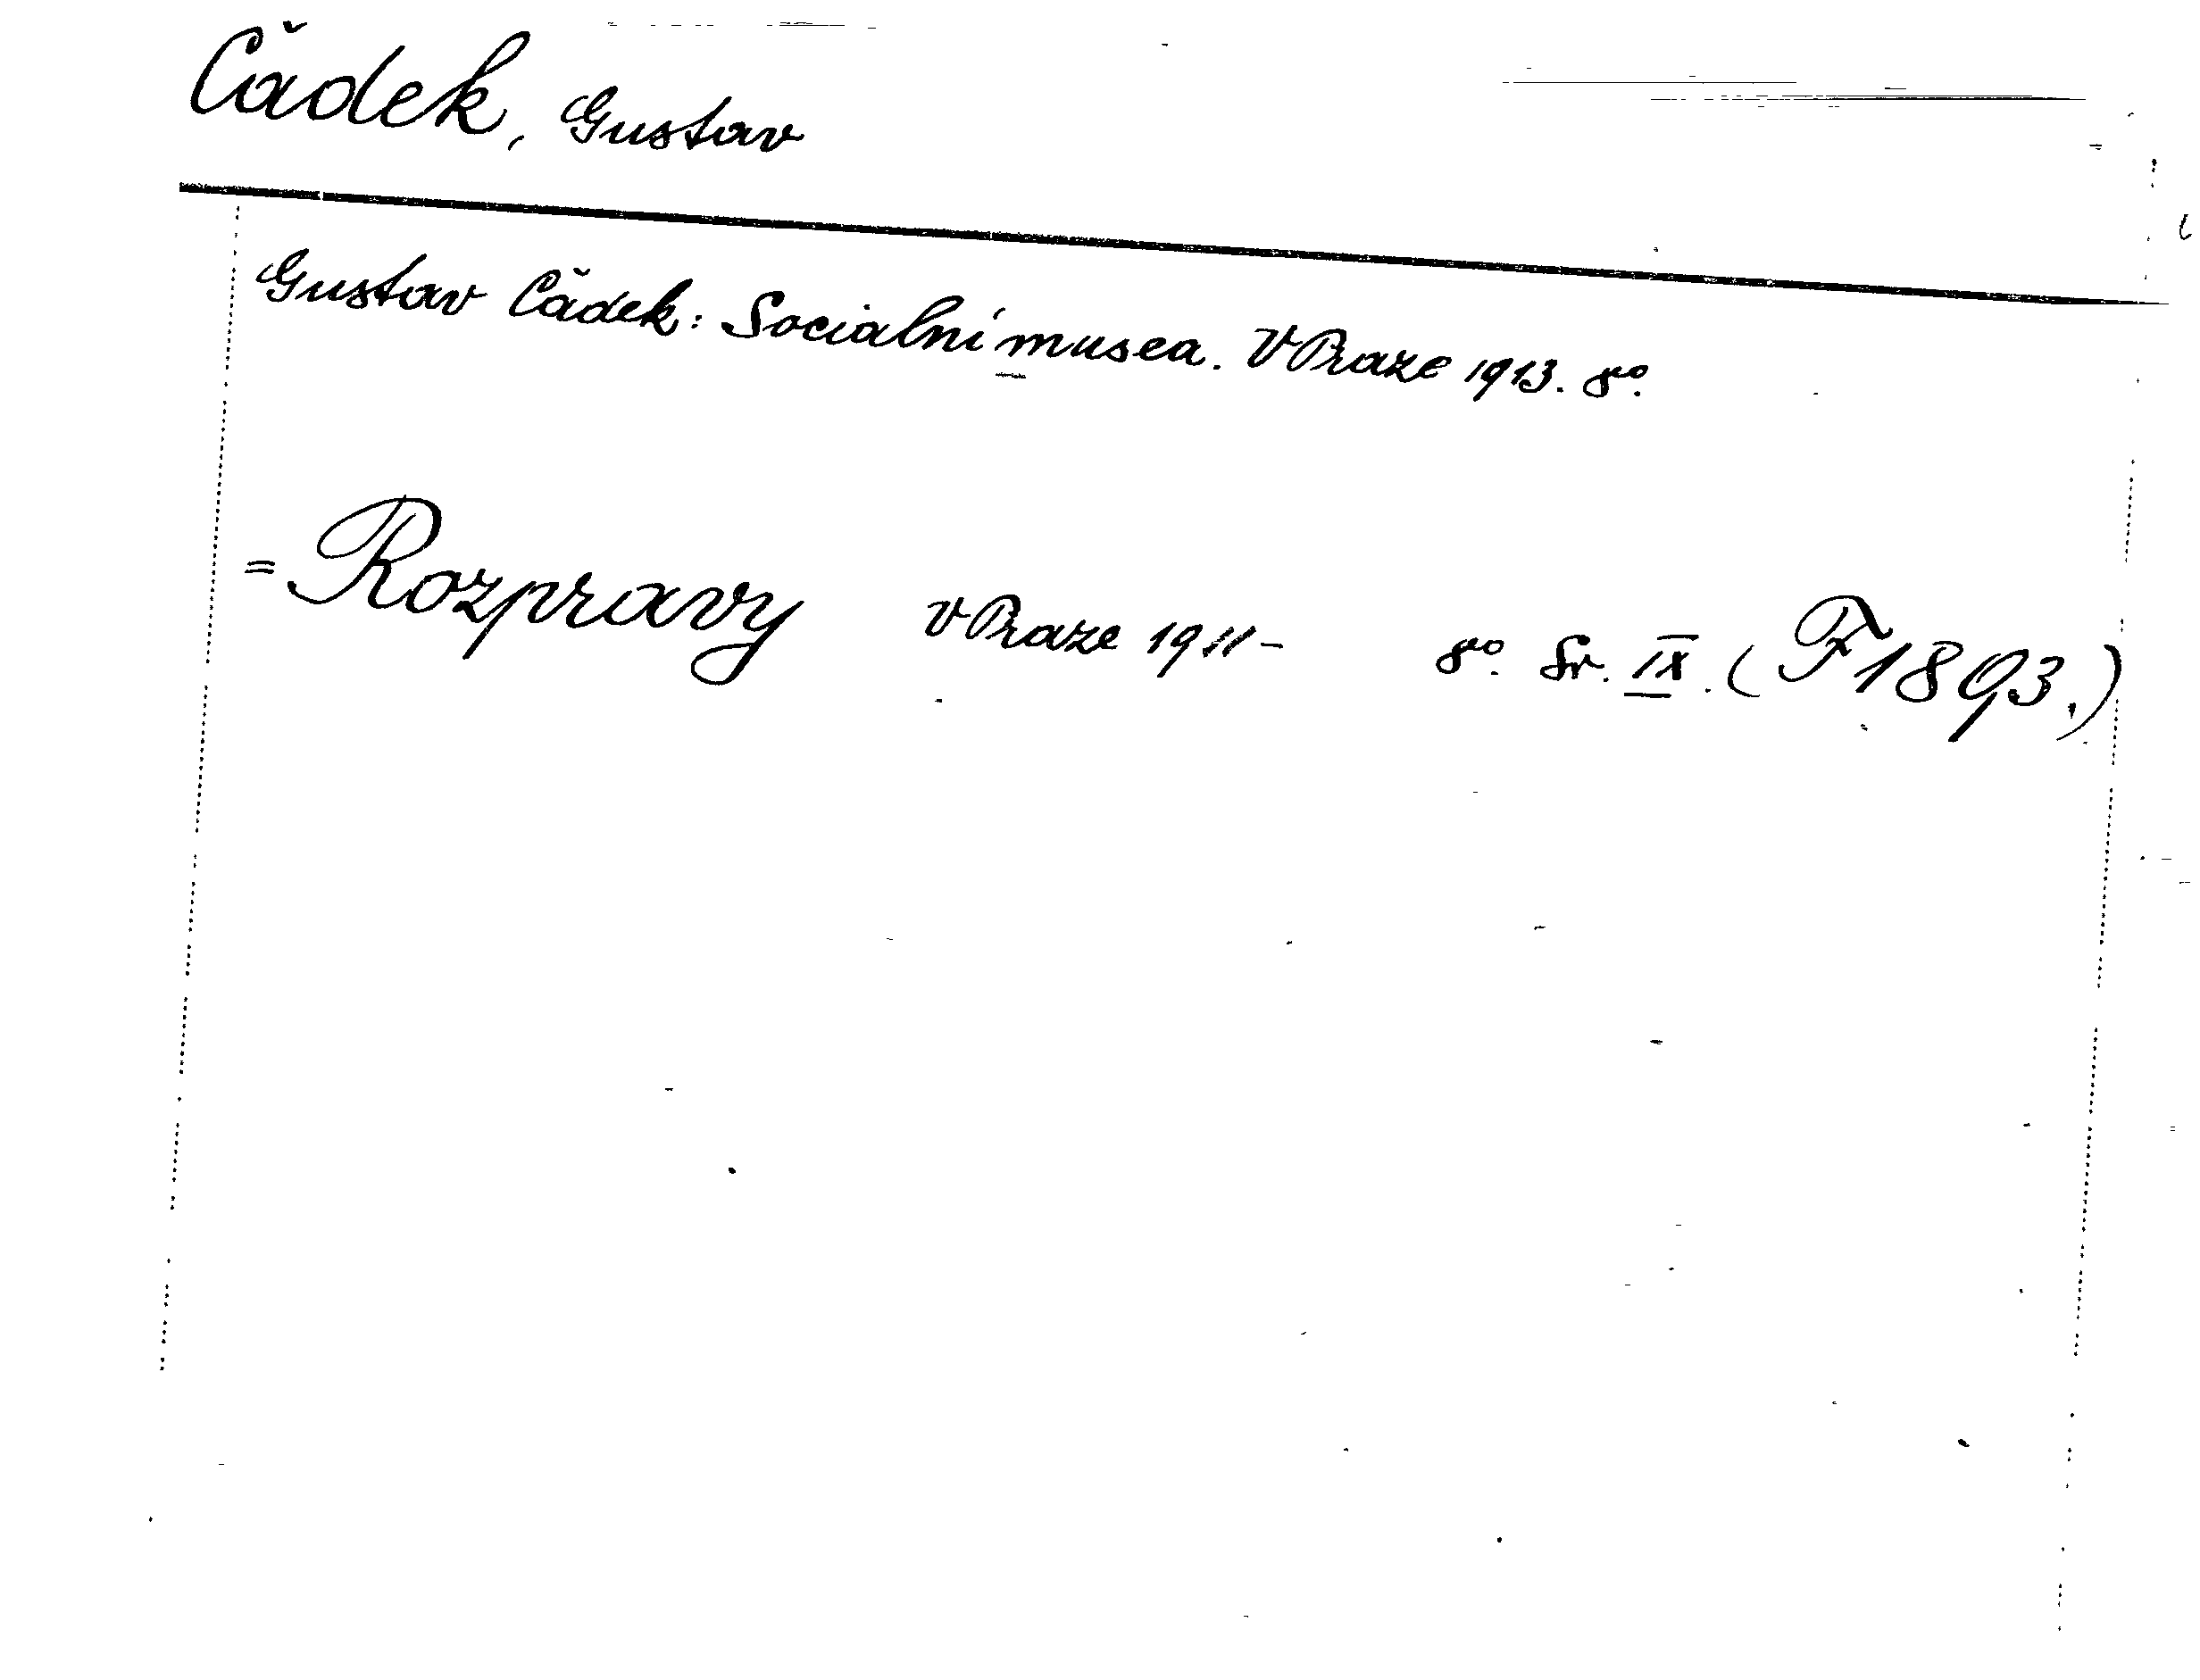 Čádek, Gustav
Gustav Čádek: Socialní musea. V Praze 1913. 8°.
= Rozpravy V Praze 1911- 8°. Sv. IX. (F 1893.)